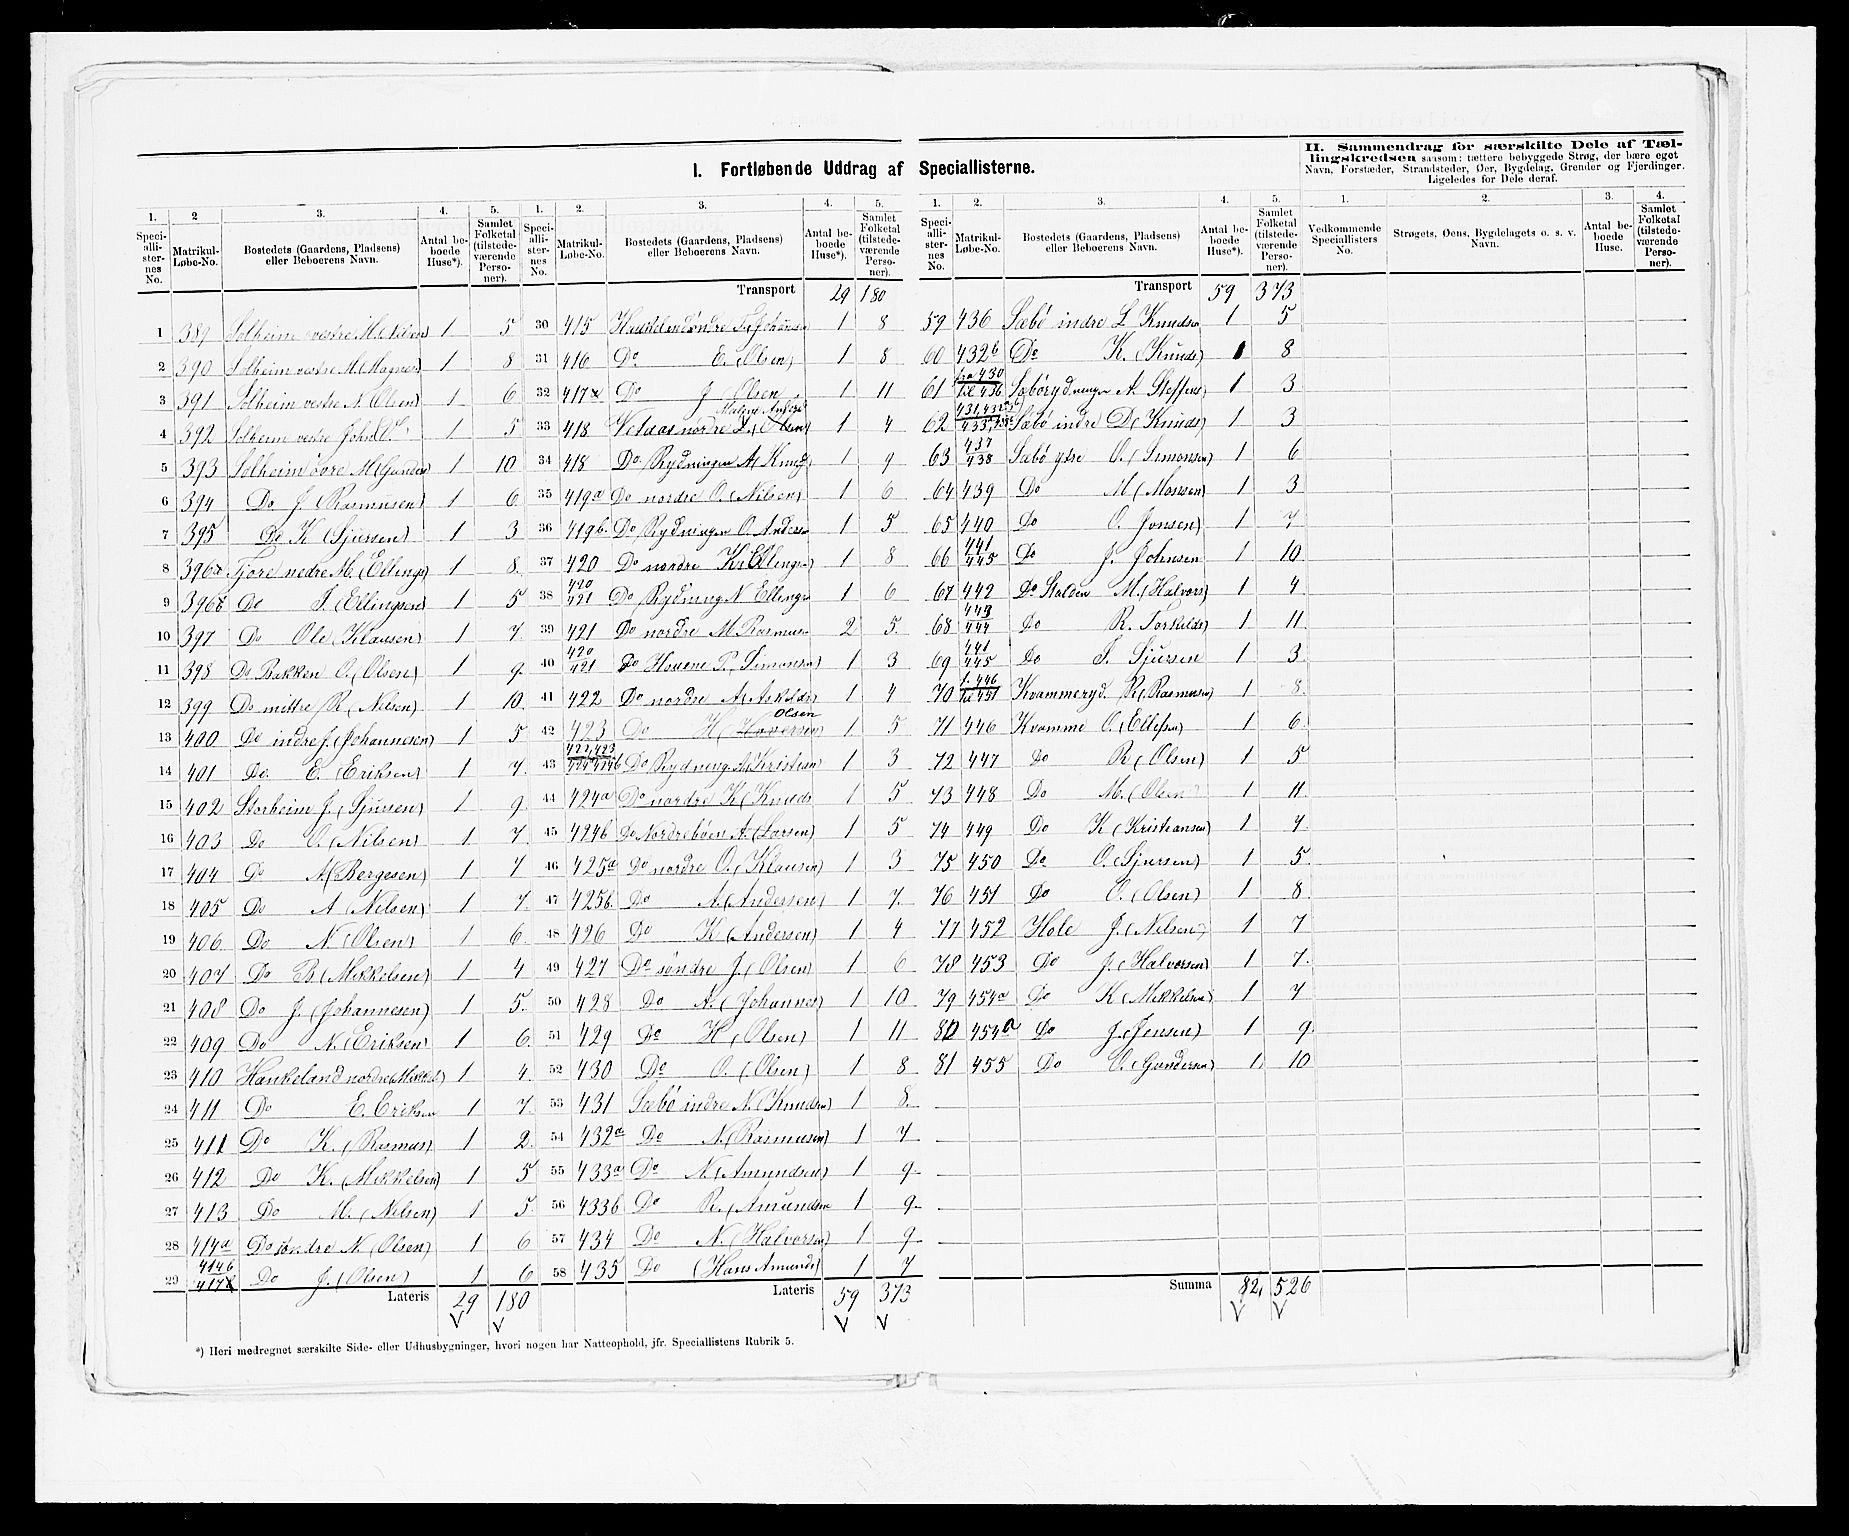 I. Fortløbende Uddrag af Speciallisterne.
II. Sammendrag for særskilte Dele af Tællingskredsen saasom: tættere bebyggede Strøg, der bære eget Navn, Forstæder, Strandsteder, Øer, Bygdelag, Grender og Fjerdinger. Ligeledes for Dele deraf.
1. 2 3. 4. 5. 1. 2. 3. 4. 5. 1. 2. 3. 4. 5. 1. 2. 3. 4.
Speciallisternes No. Matrikul-Løbe-No. Bostedets (Gaardens, Pladsens) eller Beboerens Navn. Antal beboede Huse*). Samlet Folketal (tilstedeværende Personer).
Speciallisternes No. Matrikul-Løbe-No. Bostedets (Gaardens, Pladsens) eller Beboerens Navn. Antal beboede Huse*). Samlet Folketal (tilstedeværende Personer).
Speciallisternes No. Matrikul-Løbe-No. Bostedets (Gaardens, Pladsens) eller Beboerens Navn. Antal beboede Huse*). Samlet Folketal (tilstedeværende Personer).
Vedkommende Speciallisters No. Strøgets, Øens, Bygdelagets o. s. v. Navn. Antal beboede Huse. Samlet Folketal (tilstedeværende Personer).
1 389 Solheim vestre 1 5
2 390 Solheim vestre M. (Magnes) 1 8
3 391 Solheim vestre N. Olsen) 1 6
4 392 Solheim vestre John 1 5
5 393 Solheim övre M (Gunders) 1 10
6 394 Do J. (Rasmusen) 1 6
7 395 Do K (Sjursen) 1 3
8 396a Fjore nedre M. (Ellings) 1 8
9 396b Do S. (Ellingsen) 1 5
10 397 Do Ole Klausen) 1 7
11 398 Do Bakken O. (Olsen) 1 9
12 399 Do mittre R (Nilsen) 1 10
13 400 Do indre J. (Johannesen) 1 5
14 401 Do. E. (Eriksen) 1 7
15 402 Storheim J. (Sjursen) 1 9
16 403 Do O. (Nilsen) 1 7
17 404 Do M (Bergesen) 1 7
18 405 Do A (Nilsen) 1 7
19 406 Do N. (Olsen) 1 6
20 407 Do B. (Mikkelsen) 1 4
21 408 Do J. (Johannesen) 1 5
22 409 Do N. (Eriksen) 1 6
23 410 Haukeland nordre (Mikkel) 1 4
24 411 Do E. Eriksen 1 7
25 411 Do K. (Rasmus) 1 2
26 412 Do K. (Mikkelsen) 1 5
27 413 Do M. (Nilsen) 1 5
28 414a Do söndre N. (Olsen) 1 6
29 414b 417b Do J. (Olsen) 1 6
Lateris 29 180
Transport 29 180
30 415 Haukeland söndre (Johansen 1 8
31 416 Do E. (Olsen) 1 8
32 417a Do J (Olsen 1 11
33 418 Vetaas nordre 1 4
34 418 Do. Rydningen A (Knud) 1 9
35 419a Do nordre O. (Nilsen) 1 6
36 419b. Do Rydningen O. Anders 1 5
37 420 Do nordre K. (Ellingsen) 1 8
38 420 421 Do Rydning N Ellings 1 6
39 421 Do nordre M Rasmus 2 5
40 420 421 Do Hauene P. Simonsen) 1 3
41 422 Do nordre A (Askilds) 1 4
42 423 Do H. (Haversen) Olsen 1 5
43 422,423 424 Do Rydning Kristian 1 3
44 424a Do nordre K (Knuds 1 5
45 424b Do Nordreböen A. (Larsen) 1 5
46 425a Do nordre O. (Klausen) 1 3
47 425b. Do A. (Andersen) 1 7
48 426 Do K (Andersen) 1 4
49 427 Do söndre J. (Olsen) 1 6
50 428 Do A. (Johannes) 1 10
51 429 Do H (Olsen) 1 11
52 430 Do O. (Olsen) 1 8
53 431 Sæbö indre N. (Knudsen) 1 8
54 432a Do N. (Rasmusen) 1 7
55 433a Do N. (Amundsen) 1 9
56 433b Do R. (Amundsen 1 9
57 434 Do N. (Halvorsen) 1 9
58 435 Do (Hans Amunds) 1 7
Lateris 59 373
Transport 59 373
59 436 Sæbö indre L Knudsen 1 5
60 432b Do K. (Knuds) 1 8
61 fra 430 til 436 Sæböydningen A Steffens) 1 3
62 431,432 433 Sæbö indre D. (Knuds) 1 3
63 437 438 Sæbö ytre O. (Simonsen) 1 6
64 439 Do M (Monsen) 1 3
65 440 Do O. Jonsen) 1 7
66 441 445 Do J. Johnsen 1 10
67 442 Do Stalden M. (Halvors) 1 4
68 443 444 Do R. Torkilds) 1 11
69 441 445 Do S. Sjursen 1 3
70 f. 446 til 451 Kvammeryd. R. (Rasmusen) 1 8
71 446 Kvamme O. (Ellefsen) 1 6
72 447 Do R (Olsen) 1 5
73 448 Do M. (Olsen) 1 11
74 449 Do K (Kristiansen) 1 7
75 450 Do O. (Sjursen) 1 5
76 451 Do O. (Olsen) 1 8
77 452 Hole J. (Nilsen) 1 7
78 453 Do J. (Halvorsen) 1 7
79 454a Do K (Mikkelsen) 1 7
80 454a Do J. (Jensen) 1 9
81 455 Do O. (Gundersen) 1 10
Summa 82, 526
*) Heri medregnet særskilte Side- eller Udhusbygninger, hvori nogen har Natteophold, jfr. Speciallistens Rubrik 5.